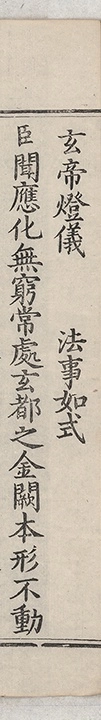 玄帝燈儀　　法事如式
臣聞應化無窮常處玄都之金闕本形不動